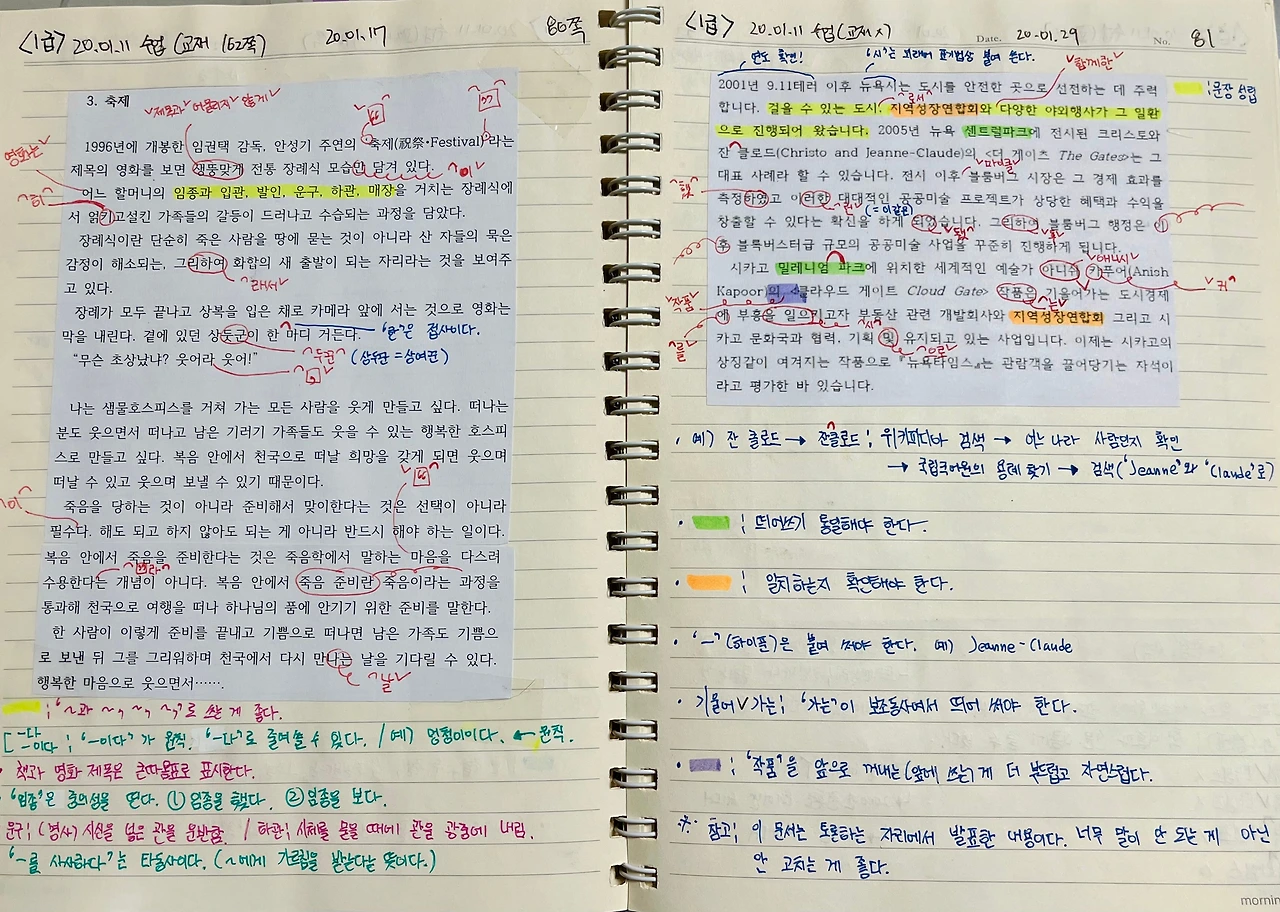 <1급> 20.01.11 수업 (교재 162쪽) 20.01.17 80쪽
3. 축제
제목과 어울리지 않게
1996년에 개봉한 임권택 감독, 안성기 주연의 축제(祝祭·Festival)라는
영화는
제목의 영화를 보면 생뚱맞게 전통 장례식 모습만 담겨 있다.
어느 할머니의 임종과 입관, 발인, 운구, 하관, 매장을 거치는 장례식에
서 얽키고설킨 가족들의 갈등이 드러나고 수습되는 과정을 담았다.
장례식이란 단순히 죽은 사람을 땅에 묻는 것이 아니라 산 자들의 묵은
감정이 해소되는, 그리하여 화합의 새 출발이 되는 자리라는 것을 보여주
고 있다.
그래서
장례가 모두 끝나고 상복을 입은 채로 카메라 앞에 서는 것으로 영화는
막을 내린다. 곁에 있던 상둣군이 한 마디 거든다.
"무슨 초상났나? 웃어라 웃어!"
두꾼 (상두꾼 = 상여꾼)
나는 샘물호스피스를 거쳐 가는 모든 사람을 웃게 만들고 싶다. 떠나는
분도 웃으면서 떠나고 남은 기러기 가족들도 웃을 수 있는 행복한 호스피
스로 만들고 싶다. 복음 안에서 천국으로 떠날 희망을 갖게 되면 웃으며
떠날 수 있고 웃으며 보낼 수 있기 때문이다.
죽음을 당하는 것이 아니라 준비해서 맞이한다는 것은 선택이 아니라
필수다. 해도 되고 하지 않아도 되는 게 아니라 반드시 해야 하는 일이다.
복음 안에서 죽음을 준비한다는 것은 죽음학에서 말하는 마음을 다스려
수용한다는 개념이 아니다. 복음 안에서 죽음 준비란 죽음이라는 과정을
통과해 천국으로 여행을 떠나 하나님의 품에 안기기 위한 준비를 말한다.
한 사람이 이렇게 준비를 끝내고 기쁨으로 떠나면 남은 가족도 기쁨으
로 보낸 뒤 그를 그리워하며 천국에서 다시 만나는 날을 기다릴 수 있다.
날
행복한 마음으로 웃으면서…….
; '~과 ~, ~, ~,'로 쓰는 게 좋다.
[-다 -이다 ; '-이다'가 원칙. '-다'로 줄여쓸 수 있다. / 예) 멍청이이다. ← 원칙.
· 책과 영화 제목은 큰따옴표로 표시한다.
· '임종'은 중의성을 띤다. ① 임종을 했다. ② 임종을 보다.
운구; (명사) 시신을 넣은 관을 운반함. / 하관; 시체를 묻을 때에 관을 광중에 내림.
'-를 사사하다'는 타동사이다. (~에게 가르침을 받는다는 뜻이다.)
<1급> 20.01.11 수업 (교재 x) Date. 20.01.29 No. 81
연도 확인! '시'는 외래어 표기법상 붙여 쓴다.
함께란
2001년 9.11테러 이후 뉴욕시는 도시를 안전한 곳으로 선전하는 데 주력
; 문장 성립
합니다. 걸을 수 있는 도시. 지역성장연합회와 다양한 야외행사가 그 일환
으로 진행되어 왔습니다. 2005년 뉴욕 센트럴파크에 전시된 크리스토와
잔 클로드(Christo and Jeanne-Claude)의 <더 게이츠 The Gate>는 그
마이클
대표 사례라 할 수 있습니다. 전시 이후 블룸버그 시장은 그 경제 효과를
측정하였고 이러한 대대적인 공공미술 프로젝트가 상당한 혜택과 수익을
(=이같은)
창출할 수 있다는 확신을 하게 되었습니다. 그리하여 블룸버그 행정은 이
후 블록버스터급 규모의 공공미술 사업을 꾸준히 진행하게 됩니다.
애니시
시카고 밀레니엄 파크에 위치한 세계적인 예술가 아니쉬 카푸어(Anish
Kapoor)의 <클라우드 게이트 Cloud Gate> 작품은 기울어가는 도시경제
작품
에 부흥을 일으키고자 부동산 관련 개발회사와 지역성장연합회 그리고 시
카고 문화국과 협력, 기획 및 유지되고 있는 사업입니다. 이제는 시카고의
으로
상징같이 여겨지는 작품으로 『뉴욕타임스』는 관람객을 끌어당기는 자석이
라고 평가한 바 있습니다.
· 예) 잔 클로드 → 잔클로드; 위키피디아 검색 → 어느 나라 사람인지 확인
→ 국립국어원의 용례 찾기 → 검색('Jeanne'와 'Claude'로)
· ; 띄어쓰기 통일해야 한다.
· ; 일치하는지 확인해야 한다.
· '-'(하이픈)은 붙여 써야 한다. 예) Jeanne-Claude
· 기울어∨가는; '가는'이 보조동사여서 띄어 써야 한다.
· ; '작품'을 앞으로 꺼내는(앞에 쓰는) 게 더 부드럽고 자연스럽다.
※ 참고; 이 문서는 토론하는 자리에서 발표한 내용이다. 너무 말이 안 되는 게 아닌
안 고치는 게 좋다.
mornin